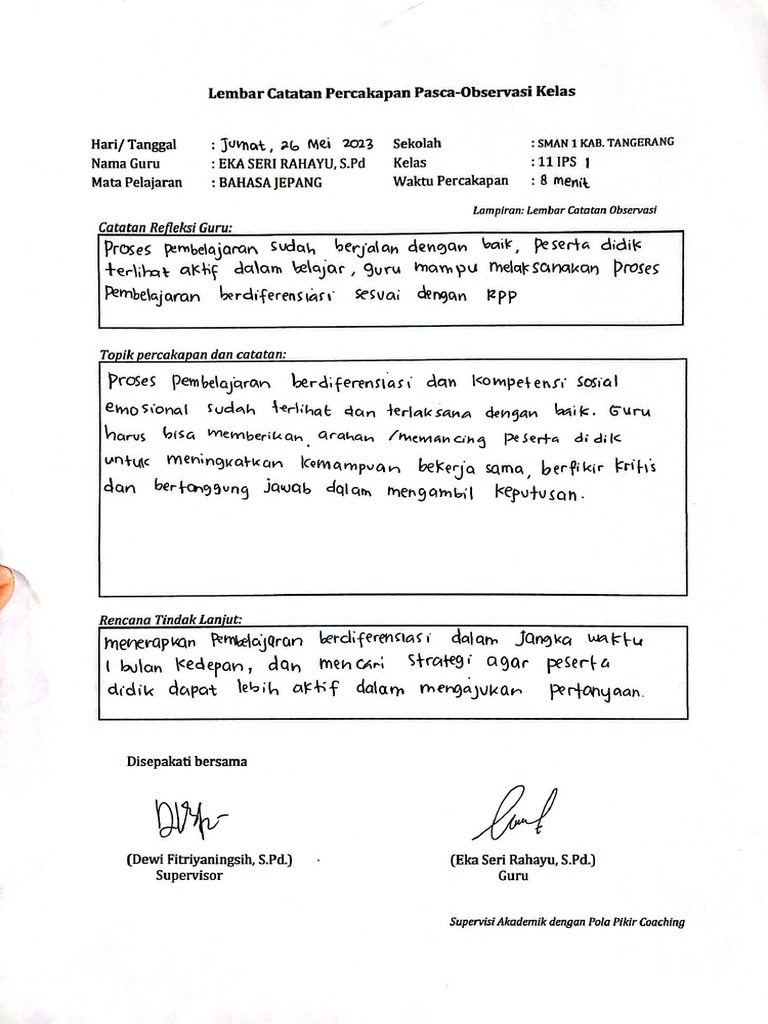 Lembar Catatan Percakapan Pasca-Observasi Kelas
Hari/ Tanggal : Jumat, 26 Mei 2023 Sekolah : SMAN 1 KAB. TANGERANG
Nama Guru : EKA SERI RAHAYU, S.Pd Kelas : 11 IPS 1
Mata Pelajaran : BAHASA JEPANG Waktu Percakapan : 8 menit
Lampiran: Lembar Catatan Observasi
Catatan Refleksi Guru:
Proses pembelajaran sudah berjalan dengan baik, peserta didik
terlihat aktif dalam belajar, guru mampu melaksanakan proses
Pembelajaran berdiferensiasi sesuai dengan RPP
Topik percakapan dan catatan:
Proses pembelajaran berdiferensiasi dan kompetensi sosial
emosional sudah terlihat dan terlaksana dengan baik. Guru
harus bisa memberikan arahan /memancing peserta didik
untuk meningkatkan kemampuan bekerja sama, berfikir kritis
dan bertanggung jawab dalam mengambil keputusan.
Rencana Tindak Lanjut:
menerapkan Pembelajaran berdiferensiasi dalam jangka waktu
1 bulan kedepan, dan mencari strategi agar peserta
didik dapat lebih aktif dalam mengajukan pertanyaan.
Disepakati bersama
(Dewi Fitriyaningsih, S.Pd.) (Eka Seri Rahayu, S.Pd.)
Supervisor Guru
Supervisi Akademik dengan Pola Pikir Coaching